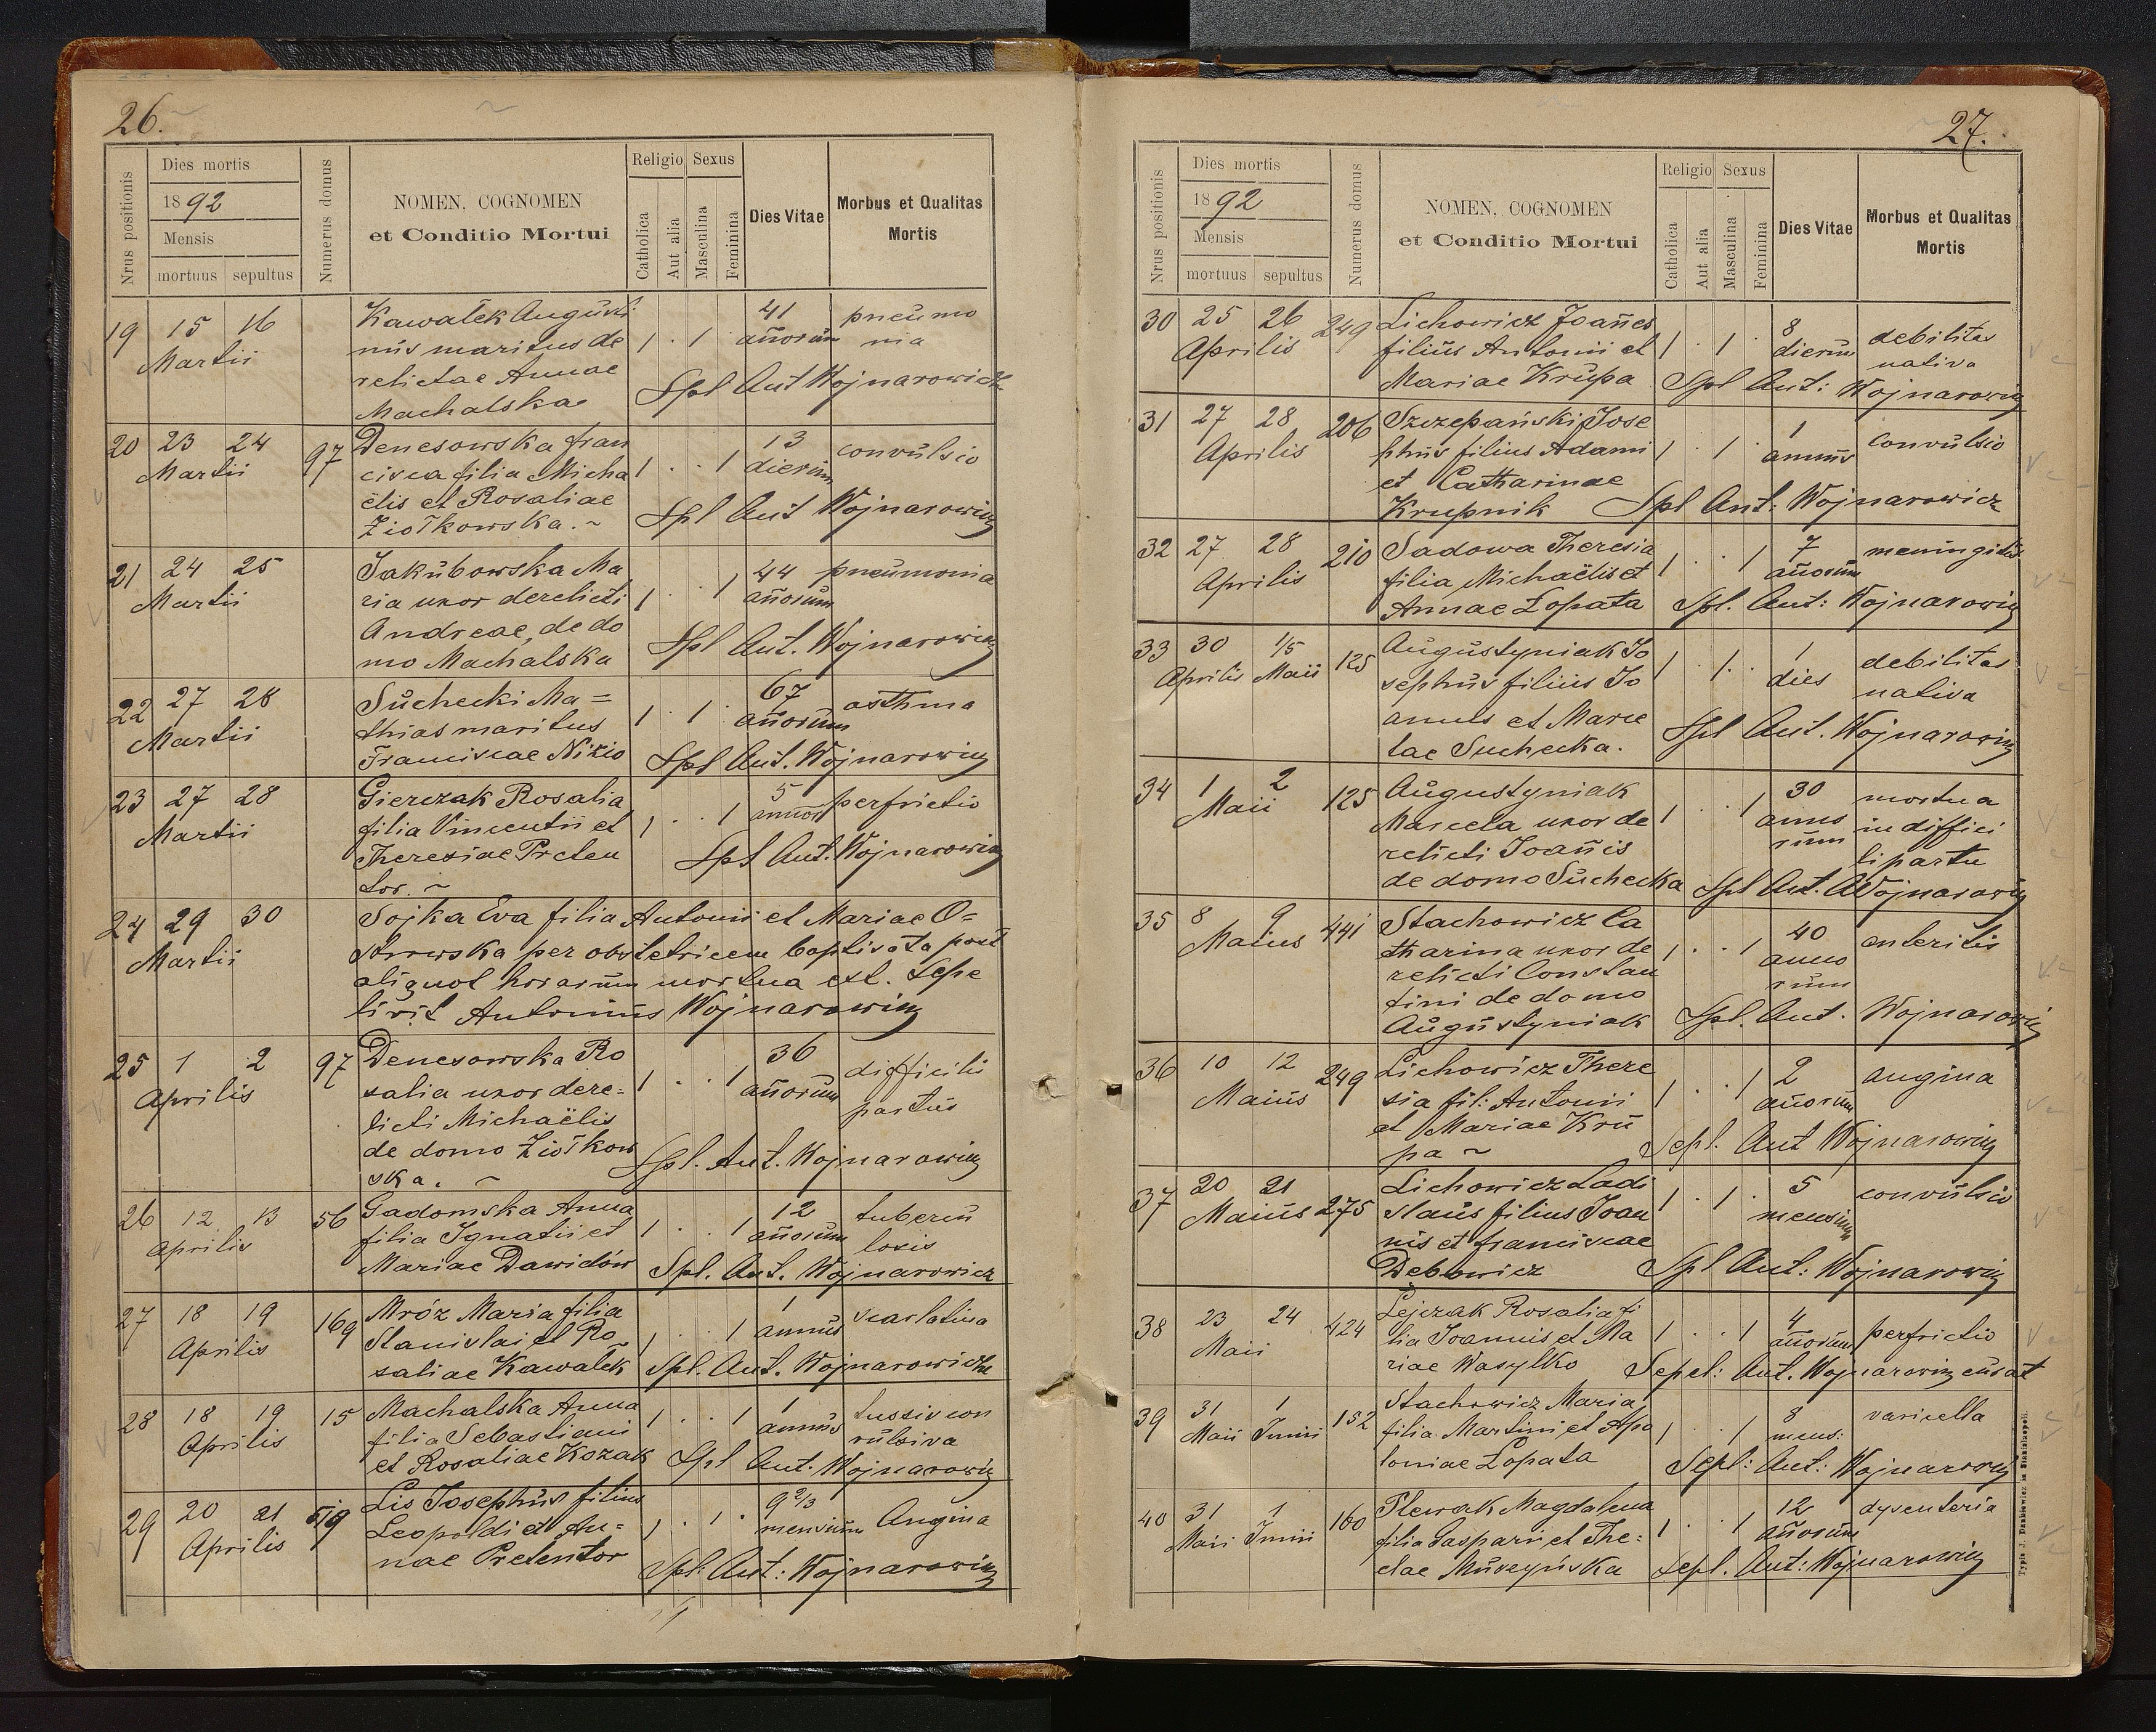 26.
Nrus positionis
Dies mortis
1892
Mensis
mortuus sepultus
Numerus domus
NOMEN, COGNOMEN
et Conditio Mortui
Religio Sexus
Catholica
Aut alia
Masculina
Feminina
Dies Vitae
Morbus et Qualitas
Mortis
19 15 16 Kawałek Augusti 41 pneumo
Martii nus maritus de 1 · 1 añorum nia
relictae Annae
Machalska Spl Ant Wojnarowicz
20 23 24 97 Denesowska Fran 13 convulsio
Martii cisca filia Micha 1 · · 1 dierum
ëlis et Rosaliae
Ziołkowska. ~ Spl Ant Wojnarowicz
21 24 25 Jakubowska Ma 44 pneumonia
Martii ria uxor derelicti 1 · 1 añorum
Andreae, de do
mo Machalska Spl Ant. Wojnarowicz
22 27 28 Suchecki Ma= 67 asthma
Martii thias maritus 1 · 1 añorum
Franciscae Nizio Spl Ant. Wojnarowicz
23 27 28 Gierczak Rosalia 5 perfrictio
Martii filia Vincentii et 1 · · 1 annor
Theresiae Preten
tor. ~ Spl Ant. Wojnarowicz
24 29 30 Sojka Eva filia Antonii et Mariae O=
Martii strowska per obstetricem baptisata post
aliquot horarum mortua est. Sepe
livit Antonius Wojnarowicz
25 1 2 97 Denesowska Ro 36 difficilis
Aprilis salia uxor dere= 1 · · 1 añorum partus
licti Michaëlis
de domo Ziołkow
ska. ~ Spl. Ant. Wojnarowicz
26 12 13 56 Gadomska Anna 12 tubercu
Aprilis filia Ignatii et 1 · 1 añorum losis
Mariae Dawidów Spl. Ant. Wojnarowicz
27 18 19 169 Mróz Maria filia 1 scarlatina
Aprilis Stanislai et Ro 1 · · 1 annus
saliae Kawałek Spl. Ant. Wojnarowicz
28 18 19 15 Machalska Anna 1 tussis con
Aprilis filia Sebastiani 1 · · 1 annus vulsiva
et Rosaliae Kozak Spl Ant. Wojnarowicz
29 20 21 519 Lis Josephus filius 9 2/3
Aprilis Leopoldi et An= 1 · 1 · mensium Angina
nae Pretentor Spl: Ant: Wojnarowicz
27.
Nrus positionis
Dies mortis
1892
Mensis
mortuus sepultus
Numerus domus
NOMEN, COGNOMEN
et Conditio Mortui
Religio Sexus
Catholica
Aut alia
Masculina
Feminina
Dies Vitae
Morbus et Qualitas
Mortis
30 25 26 249 Lichowicz Joañes 8 debilitas
Aprilis filius Antonii et 1 · 1 · dierum nativa
Mariae Krupa Spl Ant: Wojnarowicz
31 27 28 206 Szczepański Jose 1 convulsio
Aprilis phus filius Adami 1 · 1 · annus
et Catharinae
Krupnik Spl Ant: Wojnarowicz
32 27 28 210 Sadowa Theresia 7 meningitis
Aprilis filia Michaëlis et 1 · · 1 añorum
Annae Łopata Spl. Ant: Wojnarowicz
33 30 1/5 125 Augustyniak Jo 1 debilitas
Aprilis Maii sephus filius Jo 1 · 1 · · dies nativa
annis et Marce
lae Suchecka. Spl Ant. Wojnarowicz
34 1 2 125 Augustyniak 30 mortua
Maii Marcela uxor de 1 · · 1 anno in diffici
relicti Joañis rum li partu
de domo Suchecka Spl Ant. Wojnarowicz
35 8 9 441 Stachowicz Ca 40 enteritis
Maius tharina uxor de 1 · · 1 anno
relicti Constan rum
tini de domo
Augustyniak Spl. Ant. Wojnarowicz
36 10 12 249 Lichowicz There 2 angina
Maius sia fil: Antonii 1 · · 1 añorum
et Mariae Kru
pa ~ Sepl. Ant Wojnarowicz
37 20 21 275 Lichowicz Ladi 5 convulsio
Maius slaus filius Joan 1 · 1 · mensium
nis et Franciscae
Debowicz Spl Ant: Wojnarowicz
38 23 24 424 Lejczak Rosalia fi 4 perfrictio
Maii lia Joannis et Ma 1 · · 1 añorum
riae Wasylko Sepel: Ant. Wojnarowicz curat
39 31 1 152 Stachowicz Maria 8 varicella
Maii Junii filia Martini et Apo 1 · · 1 mens:
loniae Łopata Sepl: Ant: Wojnarowicz
40 31 1 160 Plewak Magdalena 12 dysenteria
Maii Junii filia Caspari et The= 1 · · 1 añorum
clae Muszyńska Sepl. Ant: Wojnarowicz
Typis J. Dankiewicz in Stanislaopoli.